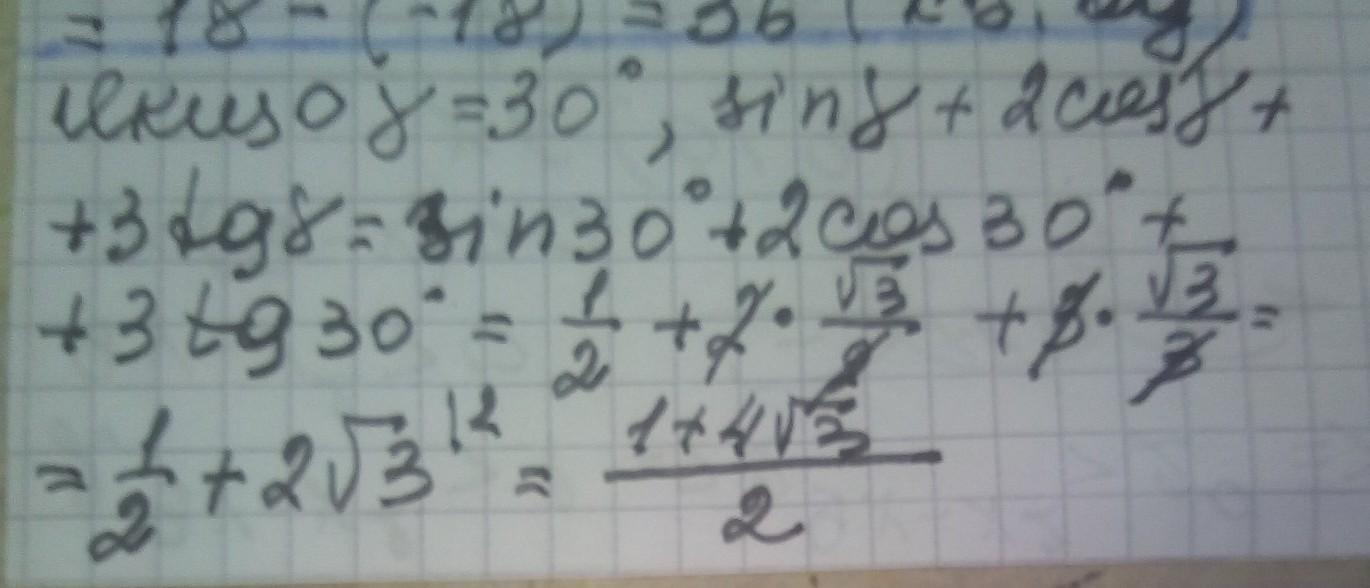 = 18 - (-18) = 36 (кв. ед)
Якщо γ = 30°, sin γ + 2 cos γ +
+ 3 tg γ = sin 30° + 2 cos 30° +
+ 3 tg 30° = 1/2 + 2 · √3/2 + 3 · √3/3 =
= 1/2 + 2√3 |2 = (1 + 4√3)/2